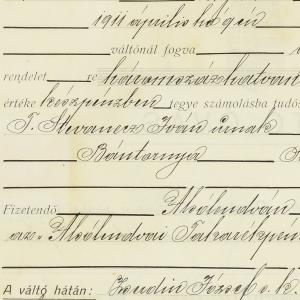 1911 április hó 9én
váltónál fogva
rendelet re háromszázhatvan
értéke készpénzben tegye számolásba tudó
T. Stevanecz Iván úrnak
Bántornya
Fizetendő Alsólendván
az „Alsólendvai Takarékpén
A váltó hátán: József s. k.